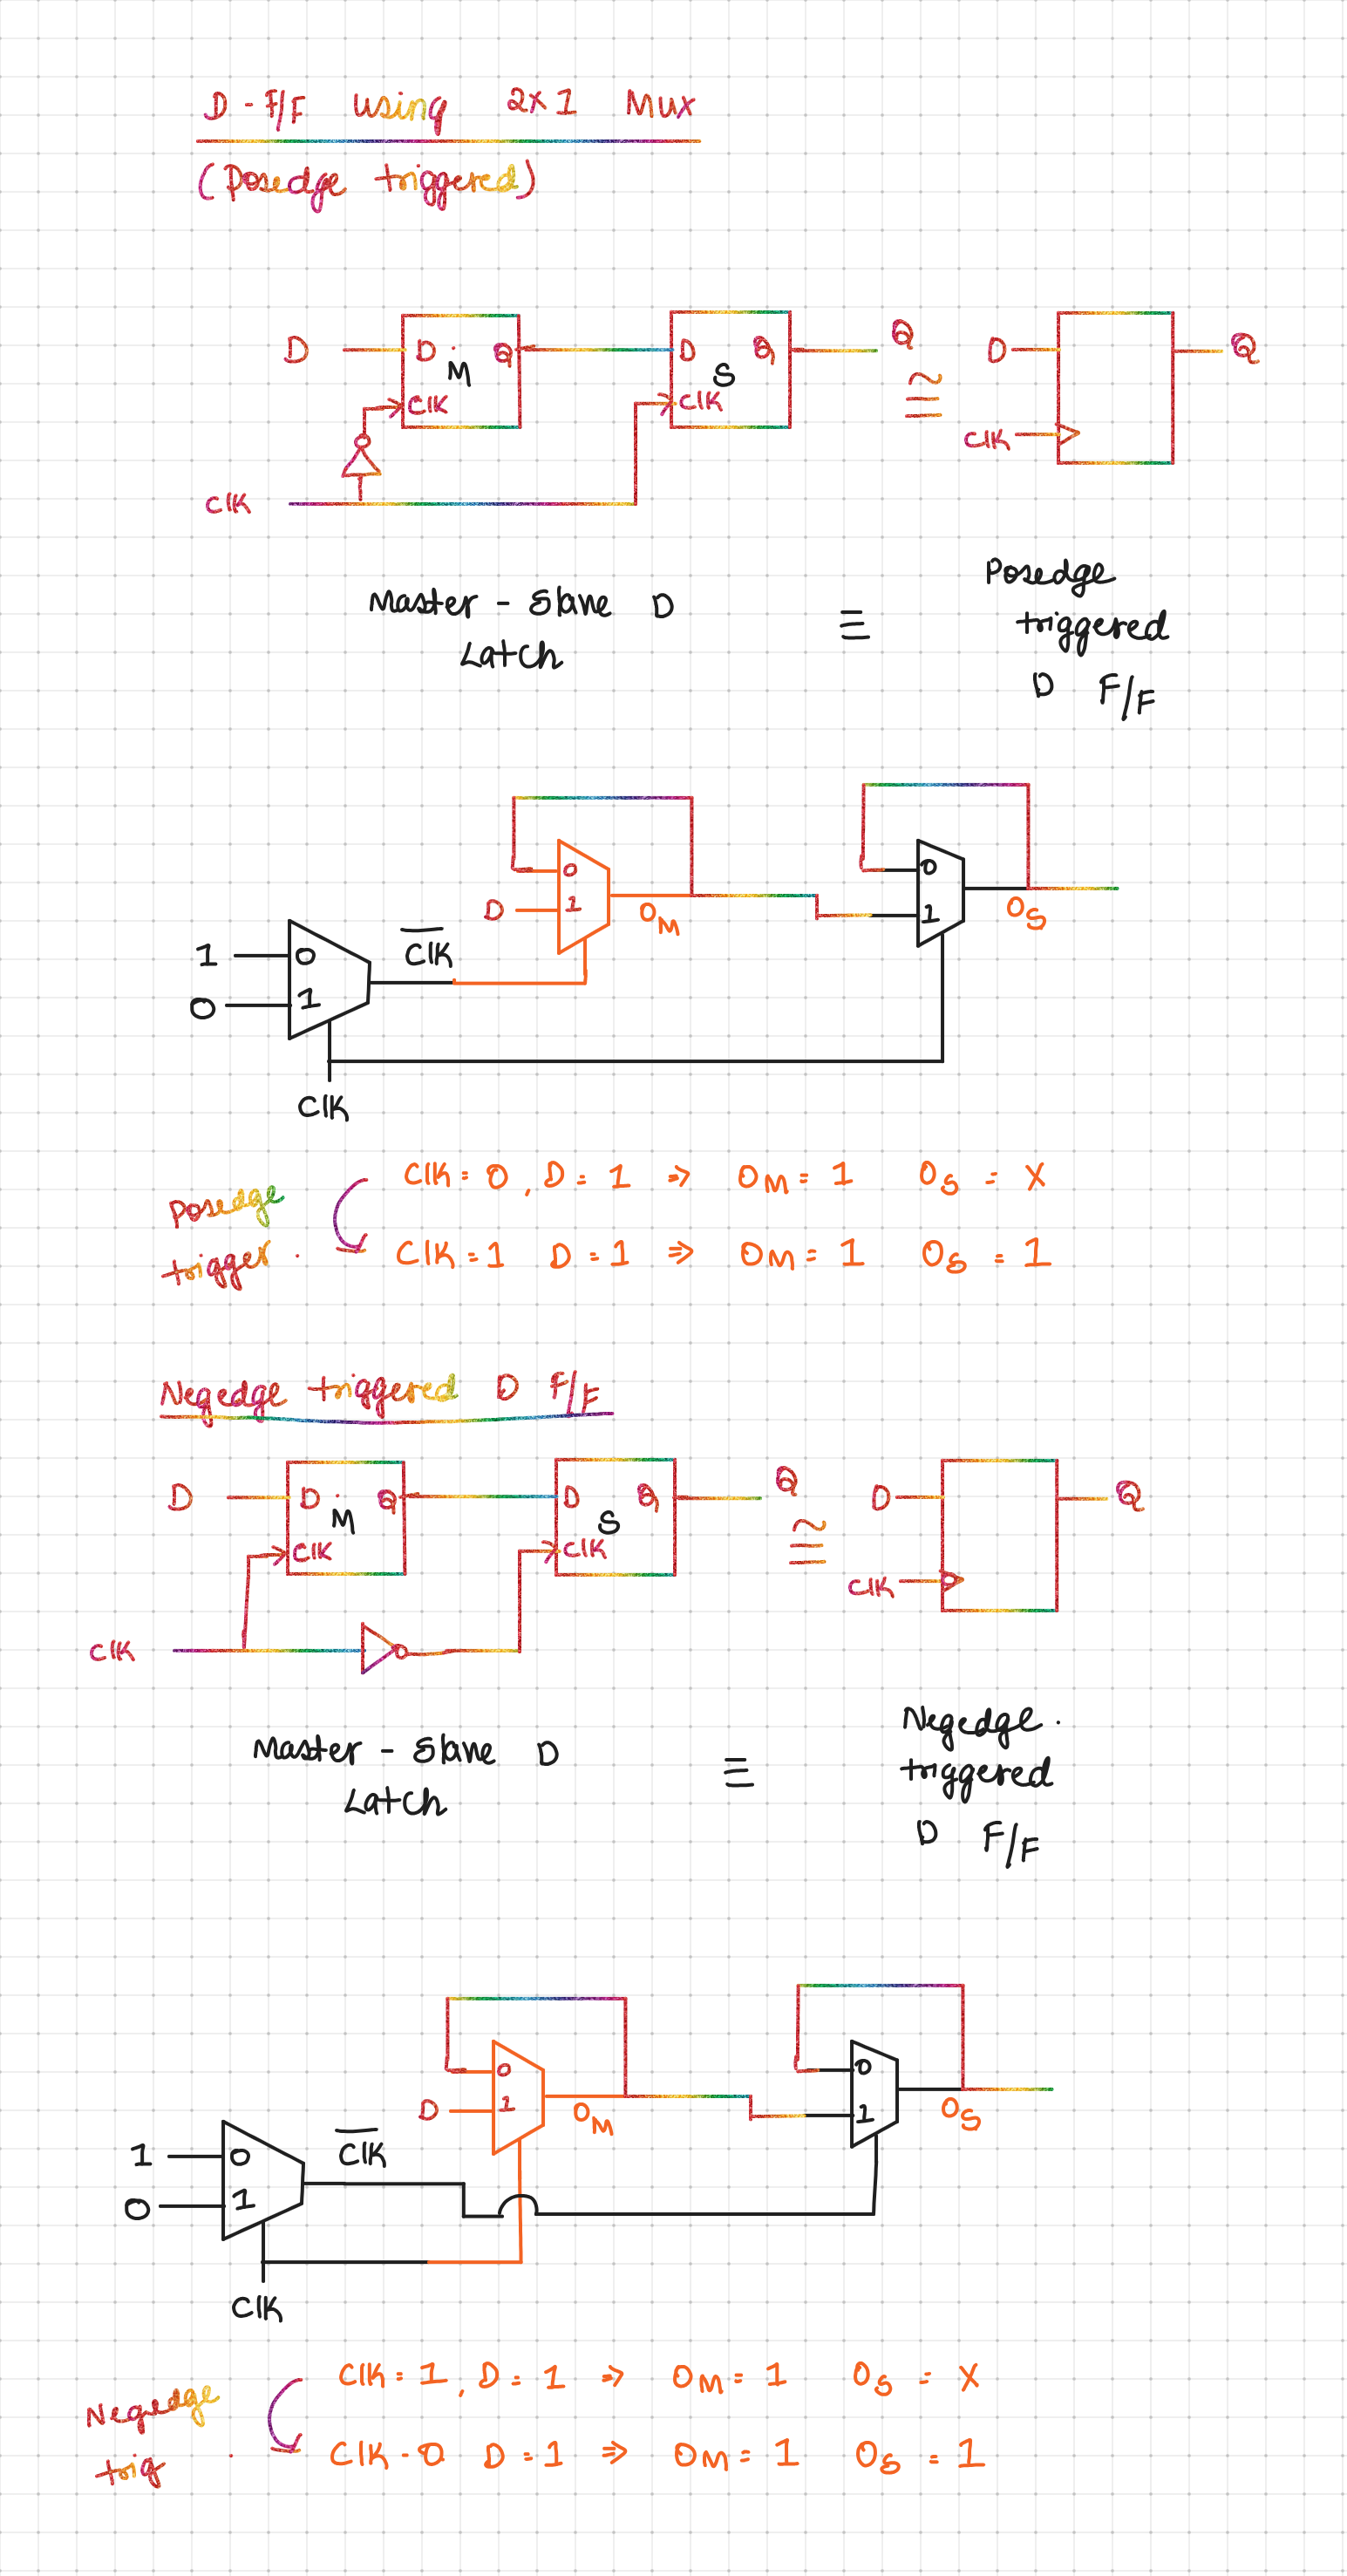 D - F/F using 2x1 Mux
(Posedge triggered)
D D Q D Q Q D Q
M S ≅
Clk Clk Clk
Clk
Master - Slave D Latch ≡ Posedge triggered D F/F
0 0
D 1 O_M 1 O_S
1 0 C̅l̅k̅
0 1
Clk
Posedge trigger.
Clk = 0, D = 1 ⇒ O_M = 1 O_S = X
Clk = 1 D = 1 ⇒ O_M = 1 O_S = 1
Negedge triggered D F/F
D D Q D Q Q D Q
M S ≅
Clk Clk Clk
Clk
Master - Slave D Latch ≡ Negedge. triggered D F/F
0 0
D 1 O_M 1 O_S
1 0 C̅l̅k̅
0 1
Clk
Negedge trig.
Clk = 1, D = 1 ⇒ O_M = 1 O_S = X
Clk - 0 D = 1 ⇒ O_M = 1 O_S = 1